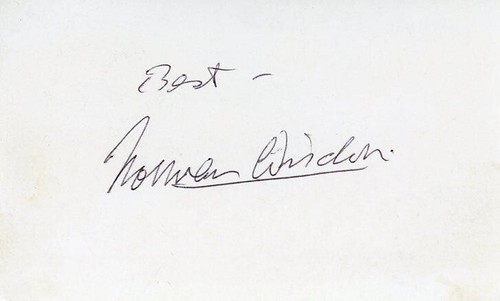 Best -
Norman Wisdom.